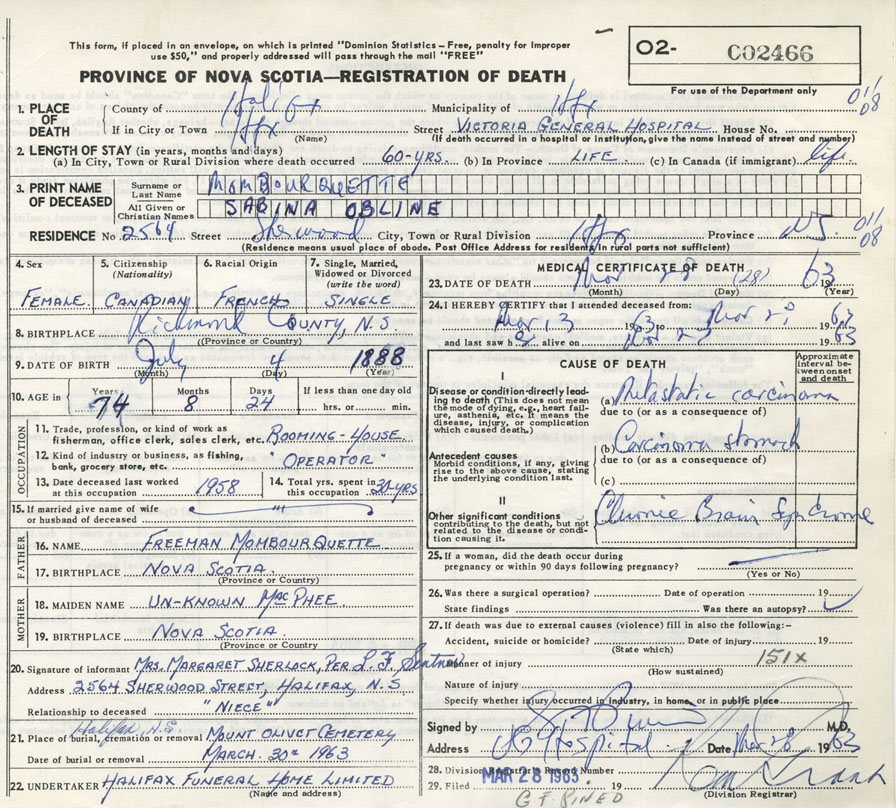 This form, if placed in an envelope, on which is printed "Dominion Statistics – Free, penalty for improper
use $50," and properly addressed will pass through the mail "FREE"
O2- C02466
PROVINCE OF NOVA SCOTIA—REGISTRATION OF DEATH
For use of the Department only
1. PLACE OF DEATH { County of Halifax Municipality of Hfx 011/08
If in City or Town Hfx (Name) Street VICTORIA GENERAL HOSPITAL House No.
(If death occurred in a hospital or institution, give the name instead of street and number)
2. LENGTH OF STAY (in years, months and days)
(a) In City, Town or Rural Division where death occurred 60-YRS. (b) In Province LIFE. (c) In Canada (if immigrant) life
3. PRINT NAME OF DECEASED { Surname or Last Name MOMBOURQUETTE
All Given or Christian Names SABINA OBLINE
RESIDENCE No. 2564 Street Sherwood City, Town or Rural Division Hfx Province NS 011/08
(Residence means usual place of abode. Post Office Address for residents in rural parts not sufficient)
4. Sex FEMALE.
5. Citizenship (Nationality) CANADIAN
6. Racial Origin FRENCH
7. Single, Married, Widowed or Divorced (write the word) SINGLE
8. BIRTHPLACE Richmond COUNTY, N.S
(Province or Country)
9. DATE OF BIRTH July 4 1888
(Month) (Day) (Year)
10. AGE in Years 74 Months 8 Days 24 If less than one day old hrs. or min.
OCCUPATION
11. Trade, profession, or kind of work as fisherman, office clerk, sales clerk, etc. ROOMING-HOUSE
12. Kind of industry or business, as fishing, bank, grocery store, etc. "OPERATOR"
13. Date deceased last worked at this occupation 1958
14. Total yrs. spent in this occupation 30-YRS
15. If married give name of wife or husband of deceased "
FATHER
16. NAME FREEMAN MOMBOURQUETTE
17. BIRTHPLACE NOVA SCOTIA.
(Province or Country)
MOTHER
18. MAIDEN NAME UN-KNOWN MACPHEE
19. BIRTHPLACE NOVA SCOTIA.
(Province or Country)
20. Signature of informant MRS. MARGARET SHERLOCK, PER L. F.
Address 2564 SHERWOOD STREET, HALIFAX, N.S
Relationship to deceased "NIECE"
Halifax, N.S.
21. Place of burial, cremation or removal MOUNT OLIVET CEMETERY
Date of burial or removal MARCH. 30th 1963
22. UNDERTAKER HALIFAX FUNERAL HOME LIMITED
(Name and address)
MEDICAL CERTIFICATE OF DEATH
23. DATE OF DEATH Mar 28 (28) 63
(Month) (Day) (Year)
24. I HEREBY CERTIFY that I attended deceased from:
Mar 13 1963 to Mar 28 1963
and last saw h alive on 1963
CAUSE OF DEATH
Approximate interval between onset and death
I
Disease or condition directly leading to death (This does not mean the mode of dying, e.g., heart failure, asthenia, etc. It means the disease, injury, or complication which caused death.)
(a) Metastatic carcinoma
due to (or as a consequence of)
Antecedent causes
Morbid conditions, if any, giving rise to the above cause, stating the underlying condition last.
(b) Carcinoma stomach
due to (or as a consequence of)
(c)
II
Other significant conditions contributing to the death, but not related to the disease or condition causing it.
Chronic Brain Syndrome
25. If a woman, did the death occur during pregnancy or within 90 days following pregnancy?
(Yes or No)
26. Was there a surgical operation? Date of operation 19
State findings Was there an autopsy?
27. If death was due to external causes (violence) fill in also the following:–
Accident, suicide or homicide? Date of injury 19
(State which) 151X
Manner of injury
(How sustained)
Nature of injury
Specify whether injury occurred in industry, in home, or in public place
Signed by M.D.
Address VG Hospital Date Mar 28 1963
28. Division Registrar's Record Number
29. Filed MAR 28 1963 19
(Division Registrar)